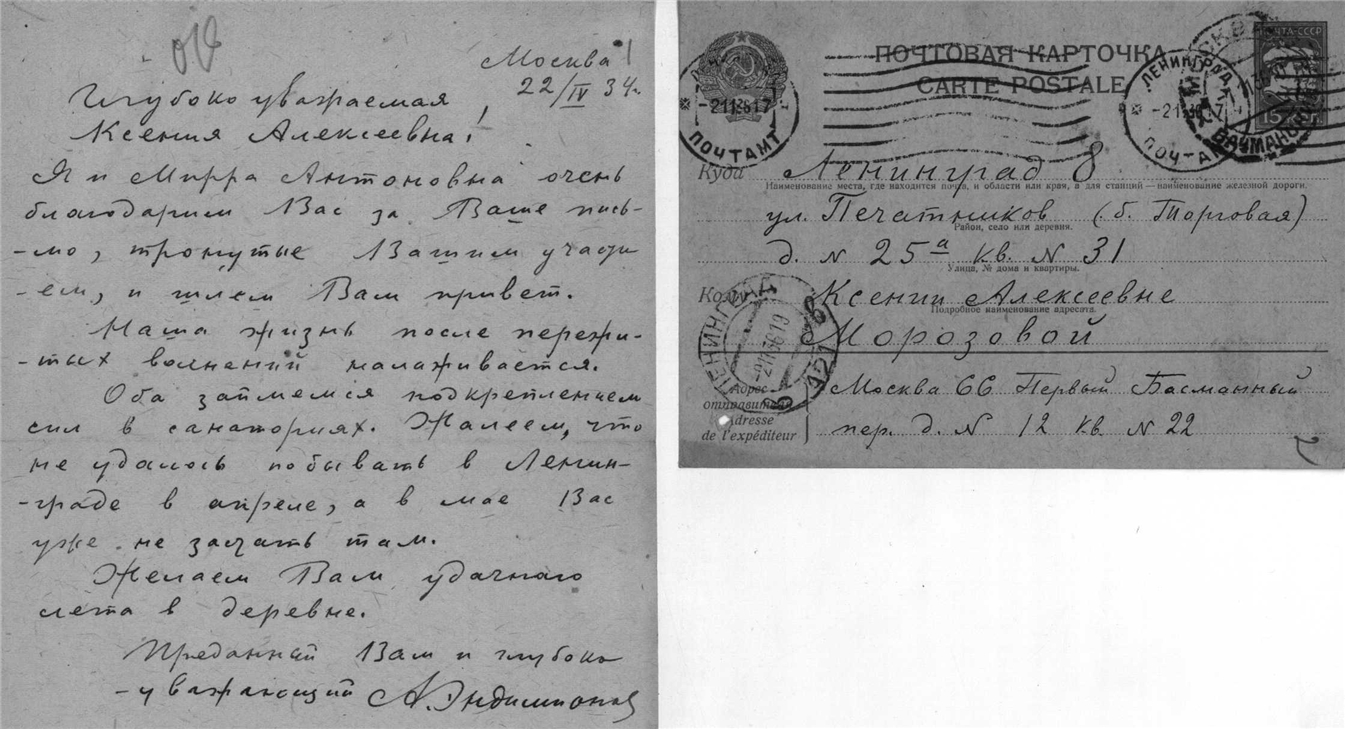 Москва
22/IV 34г.
Глубоко уважаемая,
Ксения Алексеевна!
Я и Мирра Антоновна очень
благодарим Вас за Ваше пись-
-мо, тронутые Вашим участи-
-ем, и шлем Вам привет.
Наша жизнь после пережи-
-тых волнений налаживается.
Оба займемся подкреплением
сил в санаториях. Жалеем, что
не удалось побывать в Ленин-
-граде в апреле, а в мае Вас
уже не застать там.
Желаем Вам удачного
лета в деревне.
Преданный Вам и глубоко
-уважающий А. Эндимионов
ПОЧТОВАЯ КАРТОЧКА
CARTE POSTALE
ПОЧТА-СССР
15 коп.
ЛЕНИНГРАД
ПОЧТАМТ
Куда Ленинград 8
Наименование места, где находится почта, и области или края, а для станций — наименование железной дороги.
ул. Печатников (б. Торговая)
Район, село или деревня.
д. N 25а кв. N 31
Улица, № дома и квартиры.
Кому Ксении Алексеевне
Подробное наименование адресата.
Морозовой
ЛЕНИНГРАД
Адрес отправителя
Adresse de l'expéditeur
Москва 66 Первый Басманный
пер. д. N 12 кв N 22